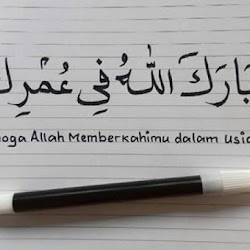 بَارَكَ اللّٰهُ فِي عُمْرِك
oga Allah Memberkahimu dalam Usia